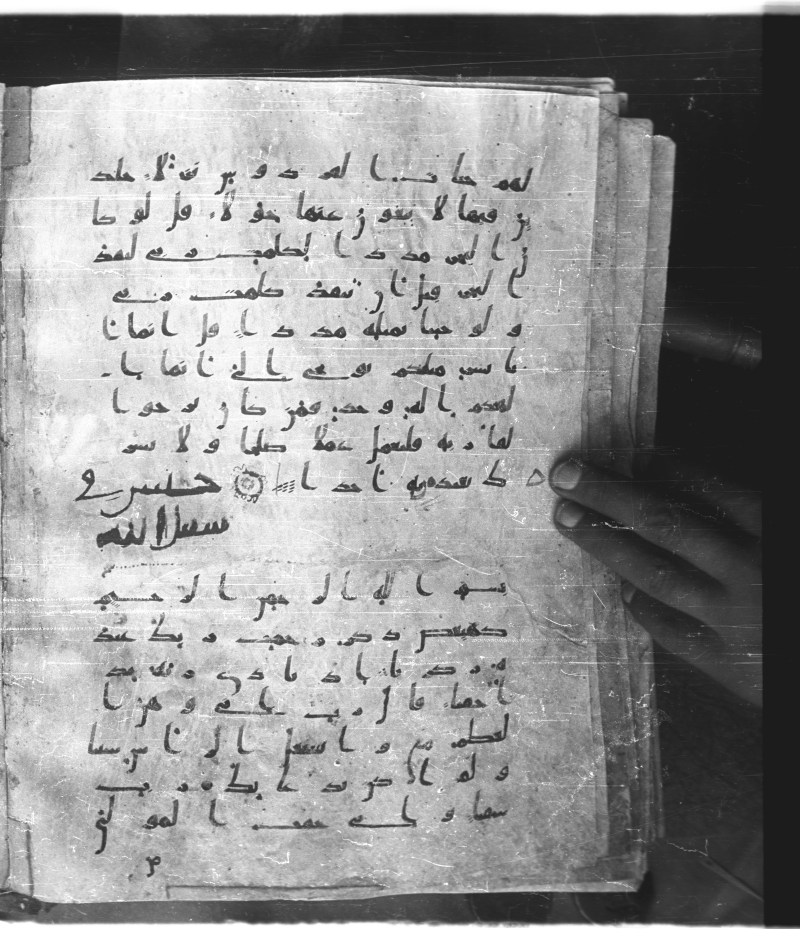 لهم جنات الفردوس نزلا خلد
ين فيها لا يبغون عنها حولا قل لو كا
ن البحر مدادا لكلمت ربي لنفد
البحر قبل ان تنفد كلمت ربي
ولو جئنا بمثله مددا قل انما انا
بشر مثلكم يوحى الي انما ا
لهكم اله وحد فمن كان يرجوا
لقا ربه فليعمل عملا صلحا ولا يشر
ك بعبده ربه احدا
بسم الله الرحمن الرحيم
كهيعص ذكر رحمت ربك عبد
ه زكريا اذ نادى ربه ند
ا خفيا قال رب اني وهن ا
لعظم مني واشتعل الراس شيبا
ولم اكن بدعائك رب
شقيا واني خفت المولي